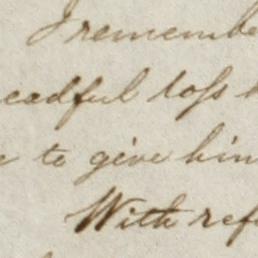 I remembe
eadful loss
to give him
With ref